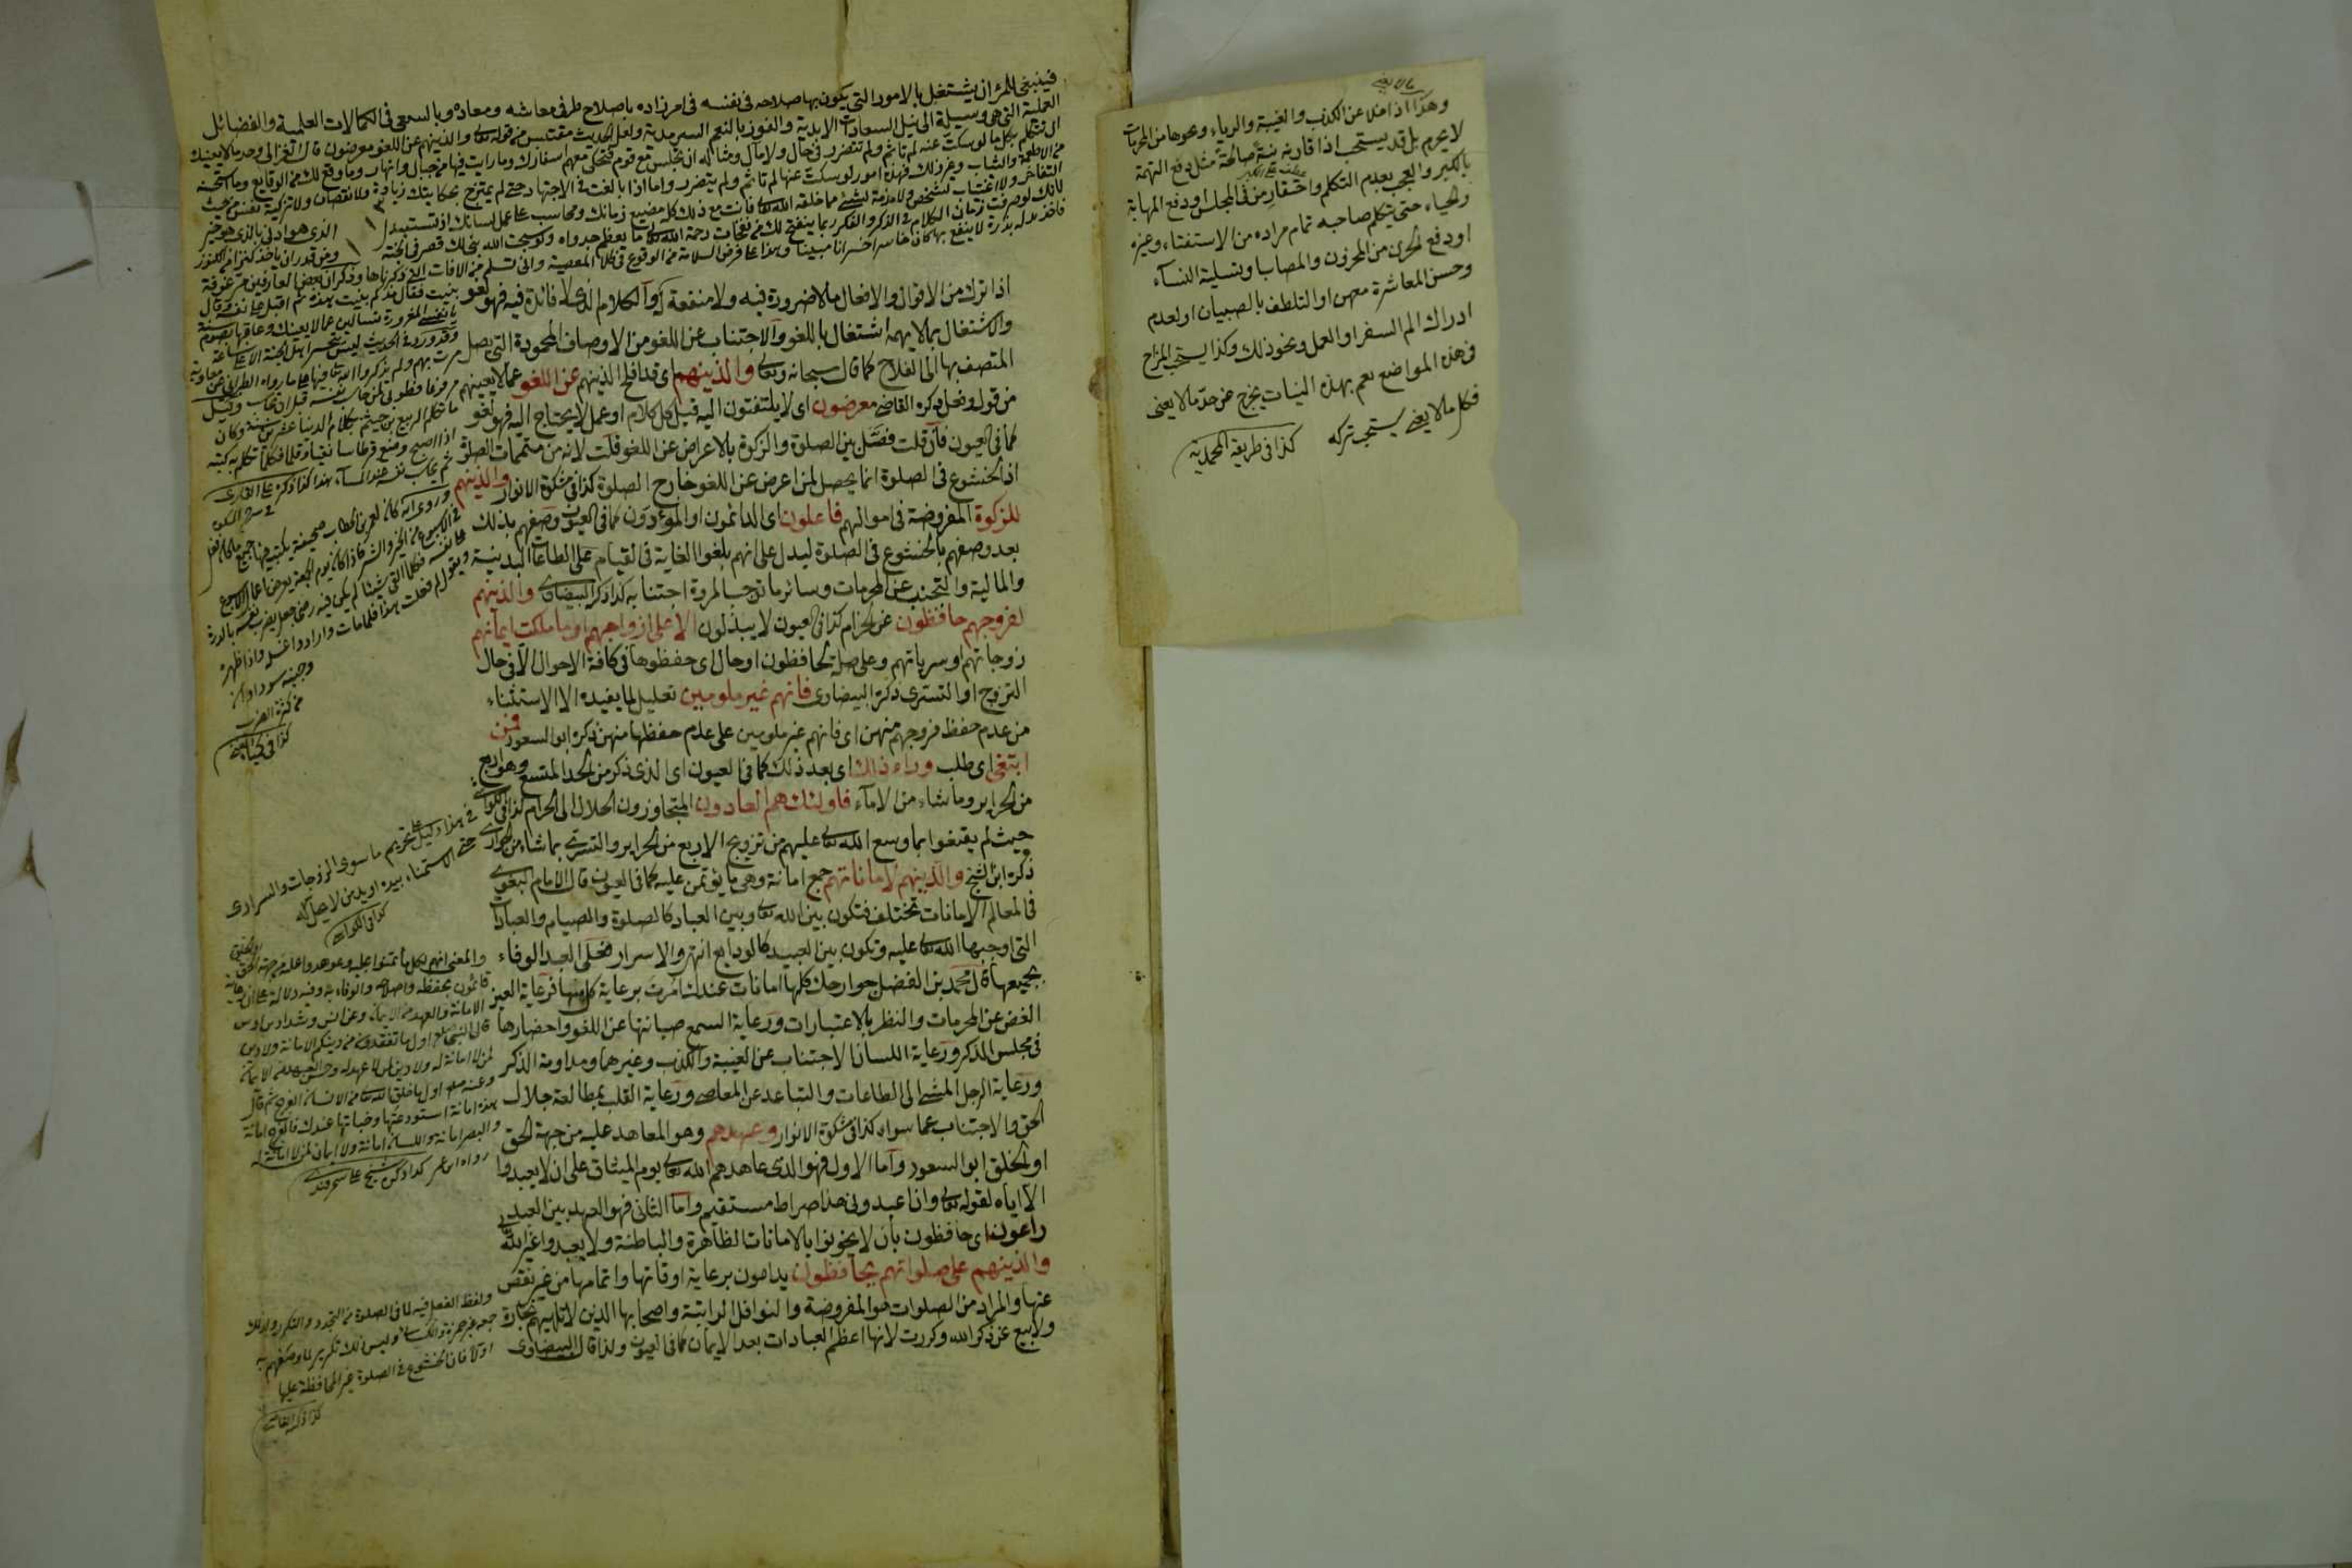 فينبغي للمرء ان يشتغل بالامور التي يكون بها صلاحه في نفسه في امر زاده باصلاح طرفي معاشه ومعاده وبالسعي في الكمالات العلمية والفضائل
العملية التي هي وسيلة الى نيل السعادات الابدية والفوز بالنعم السرمدية ولعل الحديث مقتبس من قوله تعالى والذين هم عن اللغو معرضون قال الغزالي وحد ما لا يعنيك
ان تتكلم بكل ما لو سكت عنه لم تأثم ولم تتضرر في حال ولا مآل ومثاله ان تجلس مع قوم فتحكي معهم اسفارك وما رايت فيها من جبال وانهار وما وقع لك من الوقايع وما استحسنته
من الاطعمة والثياب وغير ذلك فهذه امور لو سكت عنها لم تأثم ولم تتضرر واما اذا بالغت في الاجتهاد حتى لم يمتزج بحكايتك زيادة ولا نقصان ولا تزكية نفس من حيث
التفاخر ولا اغتياب لشخص ولا مذمة لشئ مما خلقه الله تعالى فانت مع ذلك كله مضيع زمانك ومحاسب على عمل لسانك اذ تستبدل الذي هو ادنى بالذي هو خير
لانك لو صرفت زمان الكلام في الذكر والفكر ربما ينفتح لك من نفحات رحمة الله تعالى ما يعظم جدواه ولو سبحت الله بنى لك قصر في الجنة ومن قدر ان ياخذ كنزا من الكنوز
فاخذ بدله بدرة لا ينتفع بها كان خاسرا خسرانا مبينا وهذا على فرض السلامة من الوقوع في كلام المعصية وانى تسلم من الافات التي ذكرناها وذكر ان بعض العارفين مر على غرفة
اذا ترك من الاقوال والافعال ما لا ضرورة فيه ولا منفعة او الكلام الذي لا فائدة فيه فهو لغو
والاشتغال بما لا يهمه اشتغال باللغو والاجتناب عن اللغو من الاوصاف المحمودة التي يصل
المتصف بها الى الفلاح كما قال سبحانه وتعالى والذين هم اي قد افلح الذين هم عن اللغو عما لا يعنيهم
من قول وفعل ذكره القاضي معرضون اي لا يلتفتون اليه قيل كل كلام او عمل لا يحتاج اليه فهو لغو
كما في العيون فان قلت فصل بين الصلوة والزكوة بالاعراض عن اللغو قلت لانه من متممات الصلوة
اذ الخشوع في الصلوة انما يحصل لمن اعرض عن اللغو خارج الصلوة كذا في مشكوة الانوار والذين هم
للزكوة المفروضة في اموالهم فاعلون اي الدائمون او المؤدون كما في العيون وصفهم بذلك
بعد وصفهم بالخشوع في الصلوة ليدل على انهم بلغوا الغاية في القيام على الطاعات البدنية
والمالية والتجنب عن المحرمات وسائر ما توجب المروة اجتنابه كذا ذكر البيضاوي والذين هم
لفروجهم حافظون عن الحرام كذا في العيون لا يبذلون الا على ازواجهم او ما ملكت ايمانهم
زوجاتهم او سرياتهم وعلى صلة لحافظون او حال اي حفظوها في كافة الاحوال الا في حال
التزوج او التسري ذكره البيضاوي فانهم غير ملومين تعليل لما يفيده الاستثناء
من عدم حفظ فروجهم منهن اي فانهم غير ملومين على عدم حفظها منهن ذكره ابو السعود فمن
ابتغى اي طلب وراء ذلك اي بعد ذلك كما في العيون اي الذي ذكر من الحد المتسع وهو اربع
من الحراير وما شاء من الاماء فاولئك هم العادون المتجاوزون الحلال الى الحرام كذا في اللباب
حيث لم يقنعوا بما وسع الله تعالى عليهم من تزويج الاربع من الحراير والتسري بما شاء من الجواري
ذكره ابن الشيخ والذين هم لاماناتهم جمع امانة وهي ما يؤتمن عليه كما في العيون قال الامام البغوي
في المعالم الامانات تختلف فتكون بين الله تعالى وبين العباد كالصلوة والصيام والعبادات
التي اوجبها الله تعالى عليه وتكون بين العبيد كالودايع والاسرار فعلى العبد الوفاء
بجميعها قال محمد بن الفضل جوارحك كلها امانات عندك امرت برعاية كل منها فرعاية العين
الغض عن المحرمات والنظر بالاعتبارات ورعاية السمع صيانتها عن اللغو واحضارها
في مجلس الذكر ورعاية اللسان الاجتناب عن الغيبة والكذب وغيرهما ومداومة الذكر
ورعاية الرجل المشي الى الطاعات والتباعد عن المعاصي ورعاية القلب بمطالعة جلال
الحق والاجتناب عما سواه كذا في مشكوة الانوار وعهدهم وهو المعاهد عليه من جهة الحق
او الخلق ابو السعود واما الاول فهو الذي عاهدهم الله تعالى يوم الميثاق على ان لا يعبدوا
الا اياه لقوله تعالى وان اعبدوني هذا صراط مستقيم واما الثاني فهو العهد بين العبد
راعون اي حافظون بان لا يخونوا بالامانات الظاهرة والباطنة ولا يعبدوا غير الله
والذين هم على صلواتهم يحافظون يداومون برعاية اوقاتها واتمامها من غير نقص
عنها والمراد من الصلوات هو المفروضة والنوافل الراتبة واصحابها الذين لا تلهيهم تجارة
ولا بيع عن ذكر الله وكررت لانها اعظم العبادات بعد الايمان كما في العيون ولذا قال البيضاوي
بنيت فقال مذ كم بنيت هذه ثم اقبل على نفسه وقال
يا نفسي المغرورة تسألين عما لا يعنيك وعاقبها بصوم سنة
وقد ورد في الحديث ليس يتحسر اهل الجنة الا على ساعة
مرت بهم ولم يذكروا الله تعالى فيها على ما رواه الطبراني عن معاوية
ما تكلم الربيع بن خيثم بكلام الدنيا عشرين سنة وكان
اذا اصبح وضع قرطاسا وقلما فكلما تكلم به كتبه
ثم يحاسب نفسه عند المساء هذا كذا ذكره على القاري
وروى انه كان لعمر بن الخطاب صحيفة يكتب فيها جميع ما كان يفعل
في الاسبوع من الخير والشر فاذا كان يوم الجمعة يعرض اعمال الاسبوع
على نفسه فكلما التقى شيئا لم يكن فيه رضى جعل يضرب نفسه بالدرة
ويقول لم فعلت هذا فلما مات وارادوا غسله واذا ظهره
وجنبه سوداوان
من كثرة الضرب
في هذا دليل على تحريم ما سوى الزوجات والسراري
حتى الاستمناء بيده او بيد من لا يحل له
والمعنى انهم لكل ما ائتمنوا عليه وعوهدوا عليه من جهة الحق والخلق
قائمون بحفظه واصلاحه والوفاء به وفيه دلالة على ان رعاية
الامانة والعهد من الايمان وعن انس وشداد بن اوس
قال النبي اول ما تفقدون من دينكم الامانة ولا دين
لمن لا امانة له ولا دين لمن لا عهد له وحسن العهد من الايمان
وعنه اول ما خلق الله تعالى من الانسان الفرج ثم قال
هذه امانة استودعتها عندك فالفرج امانة
والبصر امانة واللسان امانة ولا ايمان لمن لا امانة له
ولفظ الفعل فيه لما في الصلوة من التجدد والتكرر ولذلك
جمعه غير حمزة والكسائي وليس ذلك تكريرا لما وصفهم به
اولا فان الخشوع في الصلوة غير المحافظة عليها
كذا ذكره القاضي
وهذا اذا خلا عن الكذب والغيبة والرياء ونحوها من المحرمات
لا يحرم بل قد يستحب اذا قارنه نية صالحة مثل دفع التهمة
بالكبر والعجب بعدم التكلم واحتقار من في المجلس او دفع المهابة
والحياء حتى يتكلم صاحبه تمام مراده من الاستفتاء وغيره
او دفع الحزن من المحزون والمصاب او تسلية النساء
وحسن المعاشرة معهن او التلطف بالصبيان او لعدم
ادراك الم السفر او العمل ونحو ذلك وكذا يستحب المزاح
في هذه المواضع نعم بهذه النيات يخرج عن حد ما لا يعني
فكل ما لا يعني يستحب تركه كذا في طريقة المحمدية